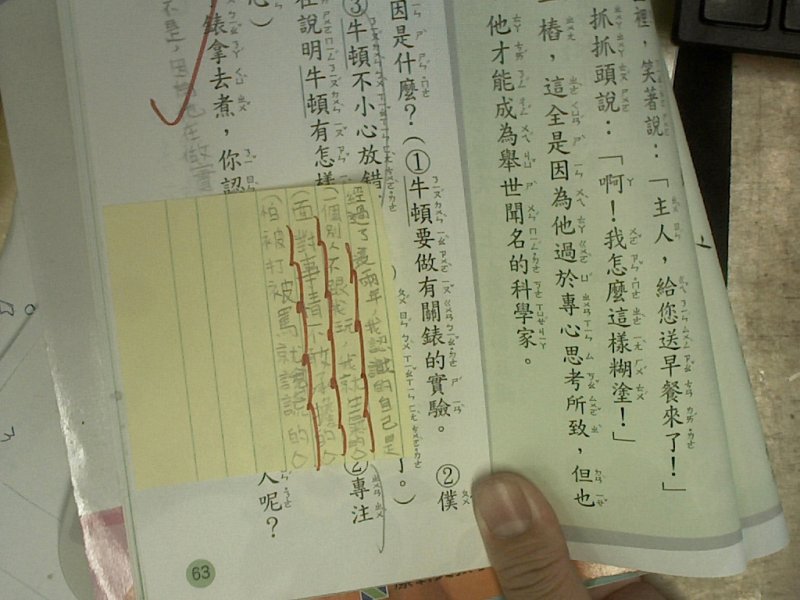 裡，笑著說：「主人，給您送早餐來了！」
抓抓頭說：「啊！我怎麼這樣糊塗！」
樁，這全是因為他過於專心思考所致，但也
他才能成為舉世聞名的科學家。
因是什麼？（①牛頓要做有關錶的實驗。②僕
③牛頓不小心放錯 了。）
在說明牛頓有怎樣 專注
錶拿去煮，你認 人呢？
經過了這兩年，我認識的自己是
一個別人不跟我玩，我就生氣的○
面對事情不放 的○
怕被打被罵就說謊的○
63